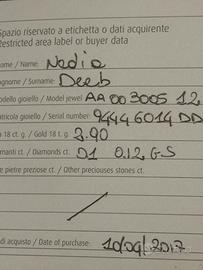 Spazio riservato a etichetta o dati acquirente
Restricted area label or buyer data
ome / Name: Nadia
ognome / Surname: Deeb
odello gioiello / Model jewel AA 00 3005 12
atricola gioiello / Serial number: 94446014 DD
18 ct. g. / Gold 18 t. g. 3.90
manti ct. / Diamonds ct. D1 0.12 G-S
e pietre preziose ct. / Other preciouses stones ct.
di acquisto / Date of purchase: 10/09/2017